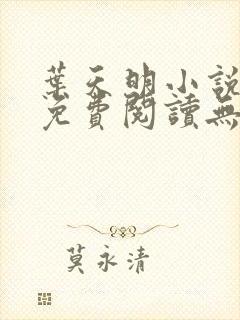 葉天明小說
免費閱讀無
莫永清